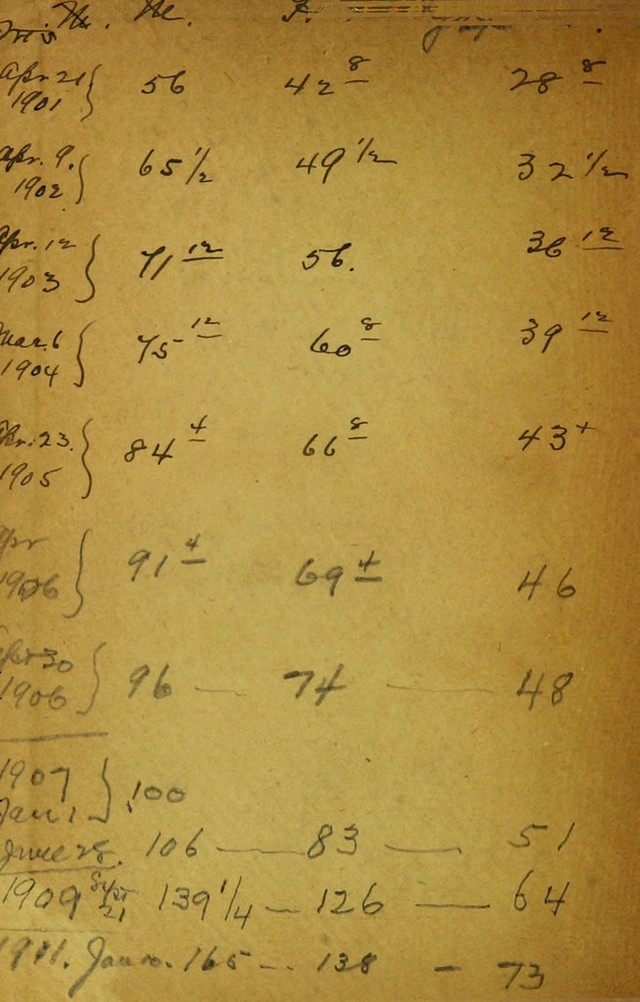 M. F.
Apr. 21 56 42 8 28 8
1901
Apr. 9. 65 1/2 49 1/2 32 1/2
1902
Apr. 12 71 12 56. 36 12
1903
Mar. 6 75 12 60 8 39 12
1904
Apr. 23. 84 4 66 8 43 +
1905
Apr 91 4 69 4 46
1906
Apr 30 96 — 74 — 48
1906
1907 } 100
Jan 1
June 28. 106 — 83 — 51
1909 Sept 21 139 1/4 — 126 — 64
1911. Jan 10. 165 -- 138 - 73